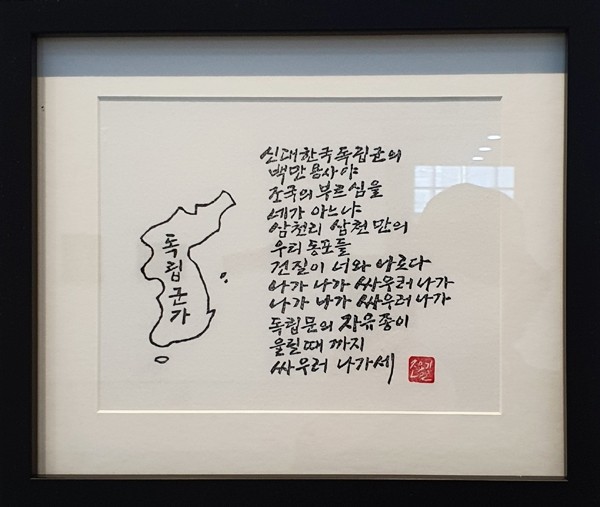 독립군가
신대한국독립군의
백만용사야
조국의 부르심을
네가 아느냐
삼천리 삼천만의
우리 동포들
건질이 너와 나로다
나가 나가 싸우러 나가
나가 나가 싸우러 나가
독립문의 자유종이
울릴때 까지
싸우러 나가세